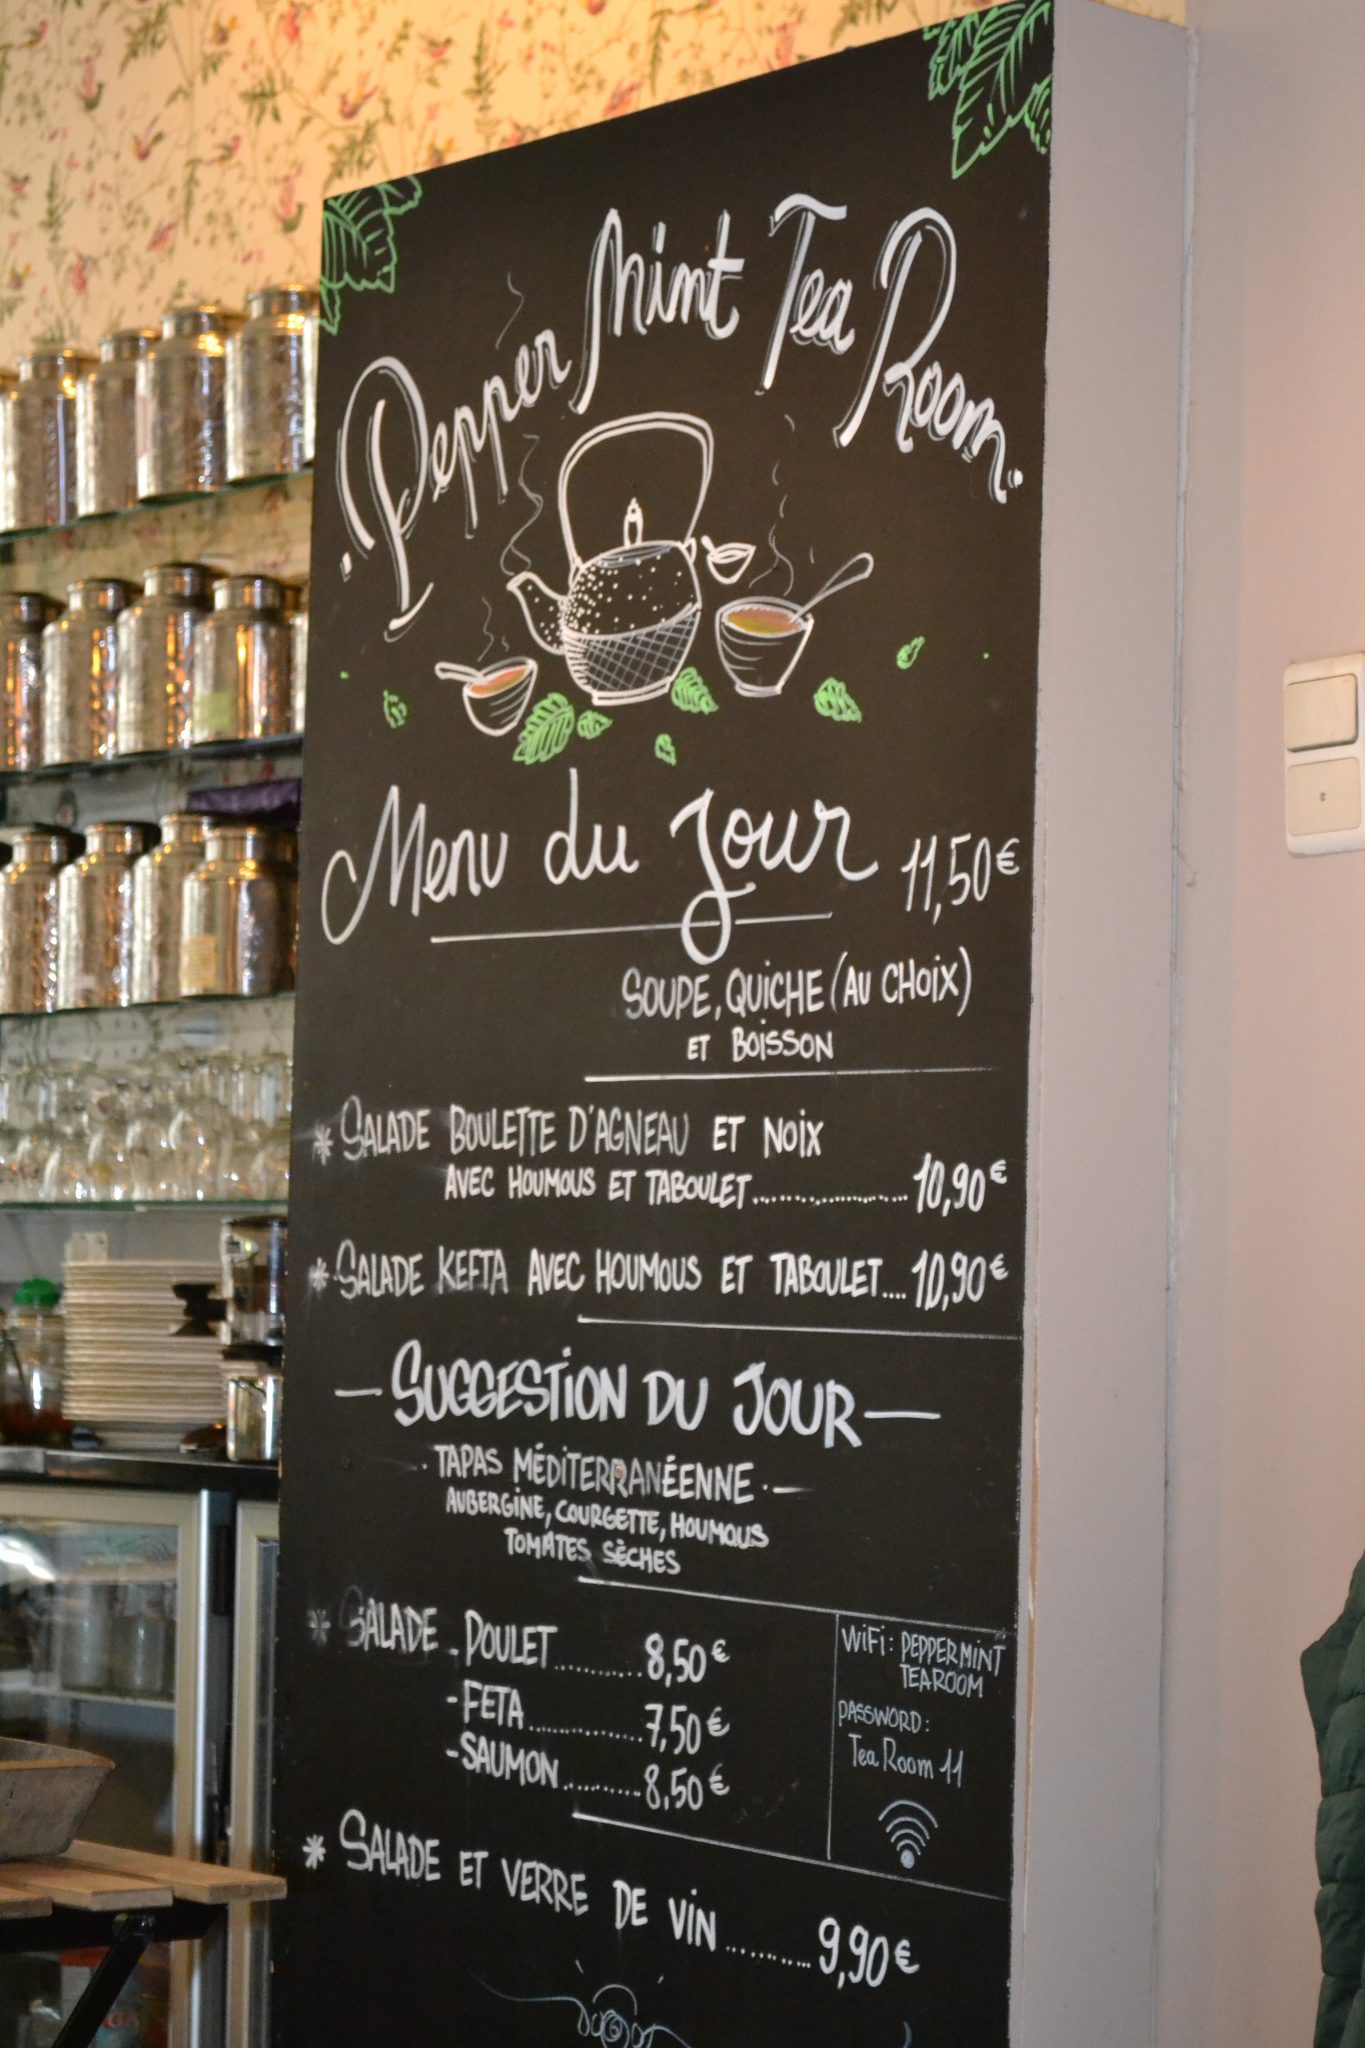 Pepper Mint Tea Room
Menu du Jour 11,50€
SOUPE, QUICHE (AU CHOIX)
ET BOISSON
* SALADE BOULETTE D'AGNEAU ET NOIX
AVEC HOUMOUS ET TABOULET.................... 10,90€
* SALADE KEFTA AVEC HOUMOUS ET TABOULET.... 10,90€
— SUGGESTION DU JOUR —
TAPAS MÉDITERRANÉENNE
AUBERGINE, COURGETTE, HOUMOUS
TOMATES SÈCHES
* SALADE - POULET............ 8,50€
- FETA.............. 7,50€
- SAUMON.......... 8,50€
WiFi: PEPPERMINT
TEAROOM
PASSWORD:
Tea Room 11
* SALADE ET VERRE DE VIN.......... 9,90€